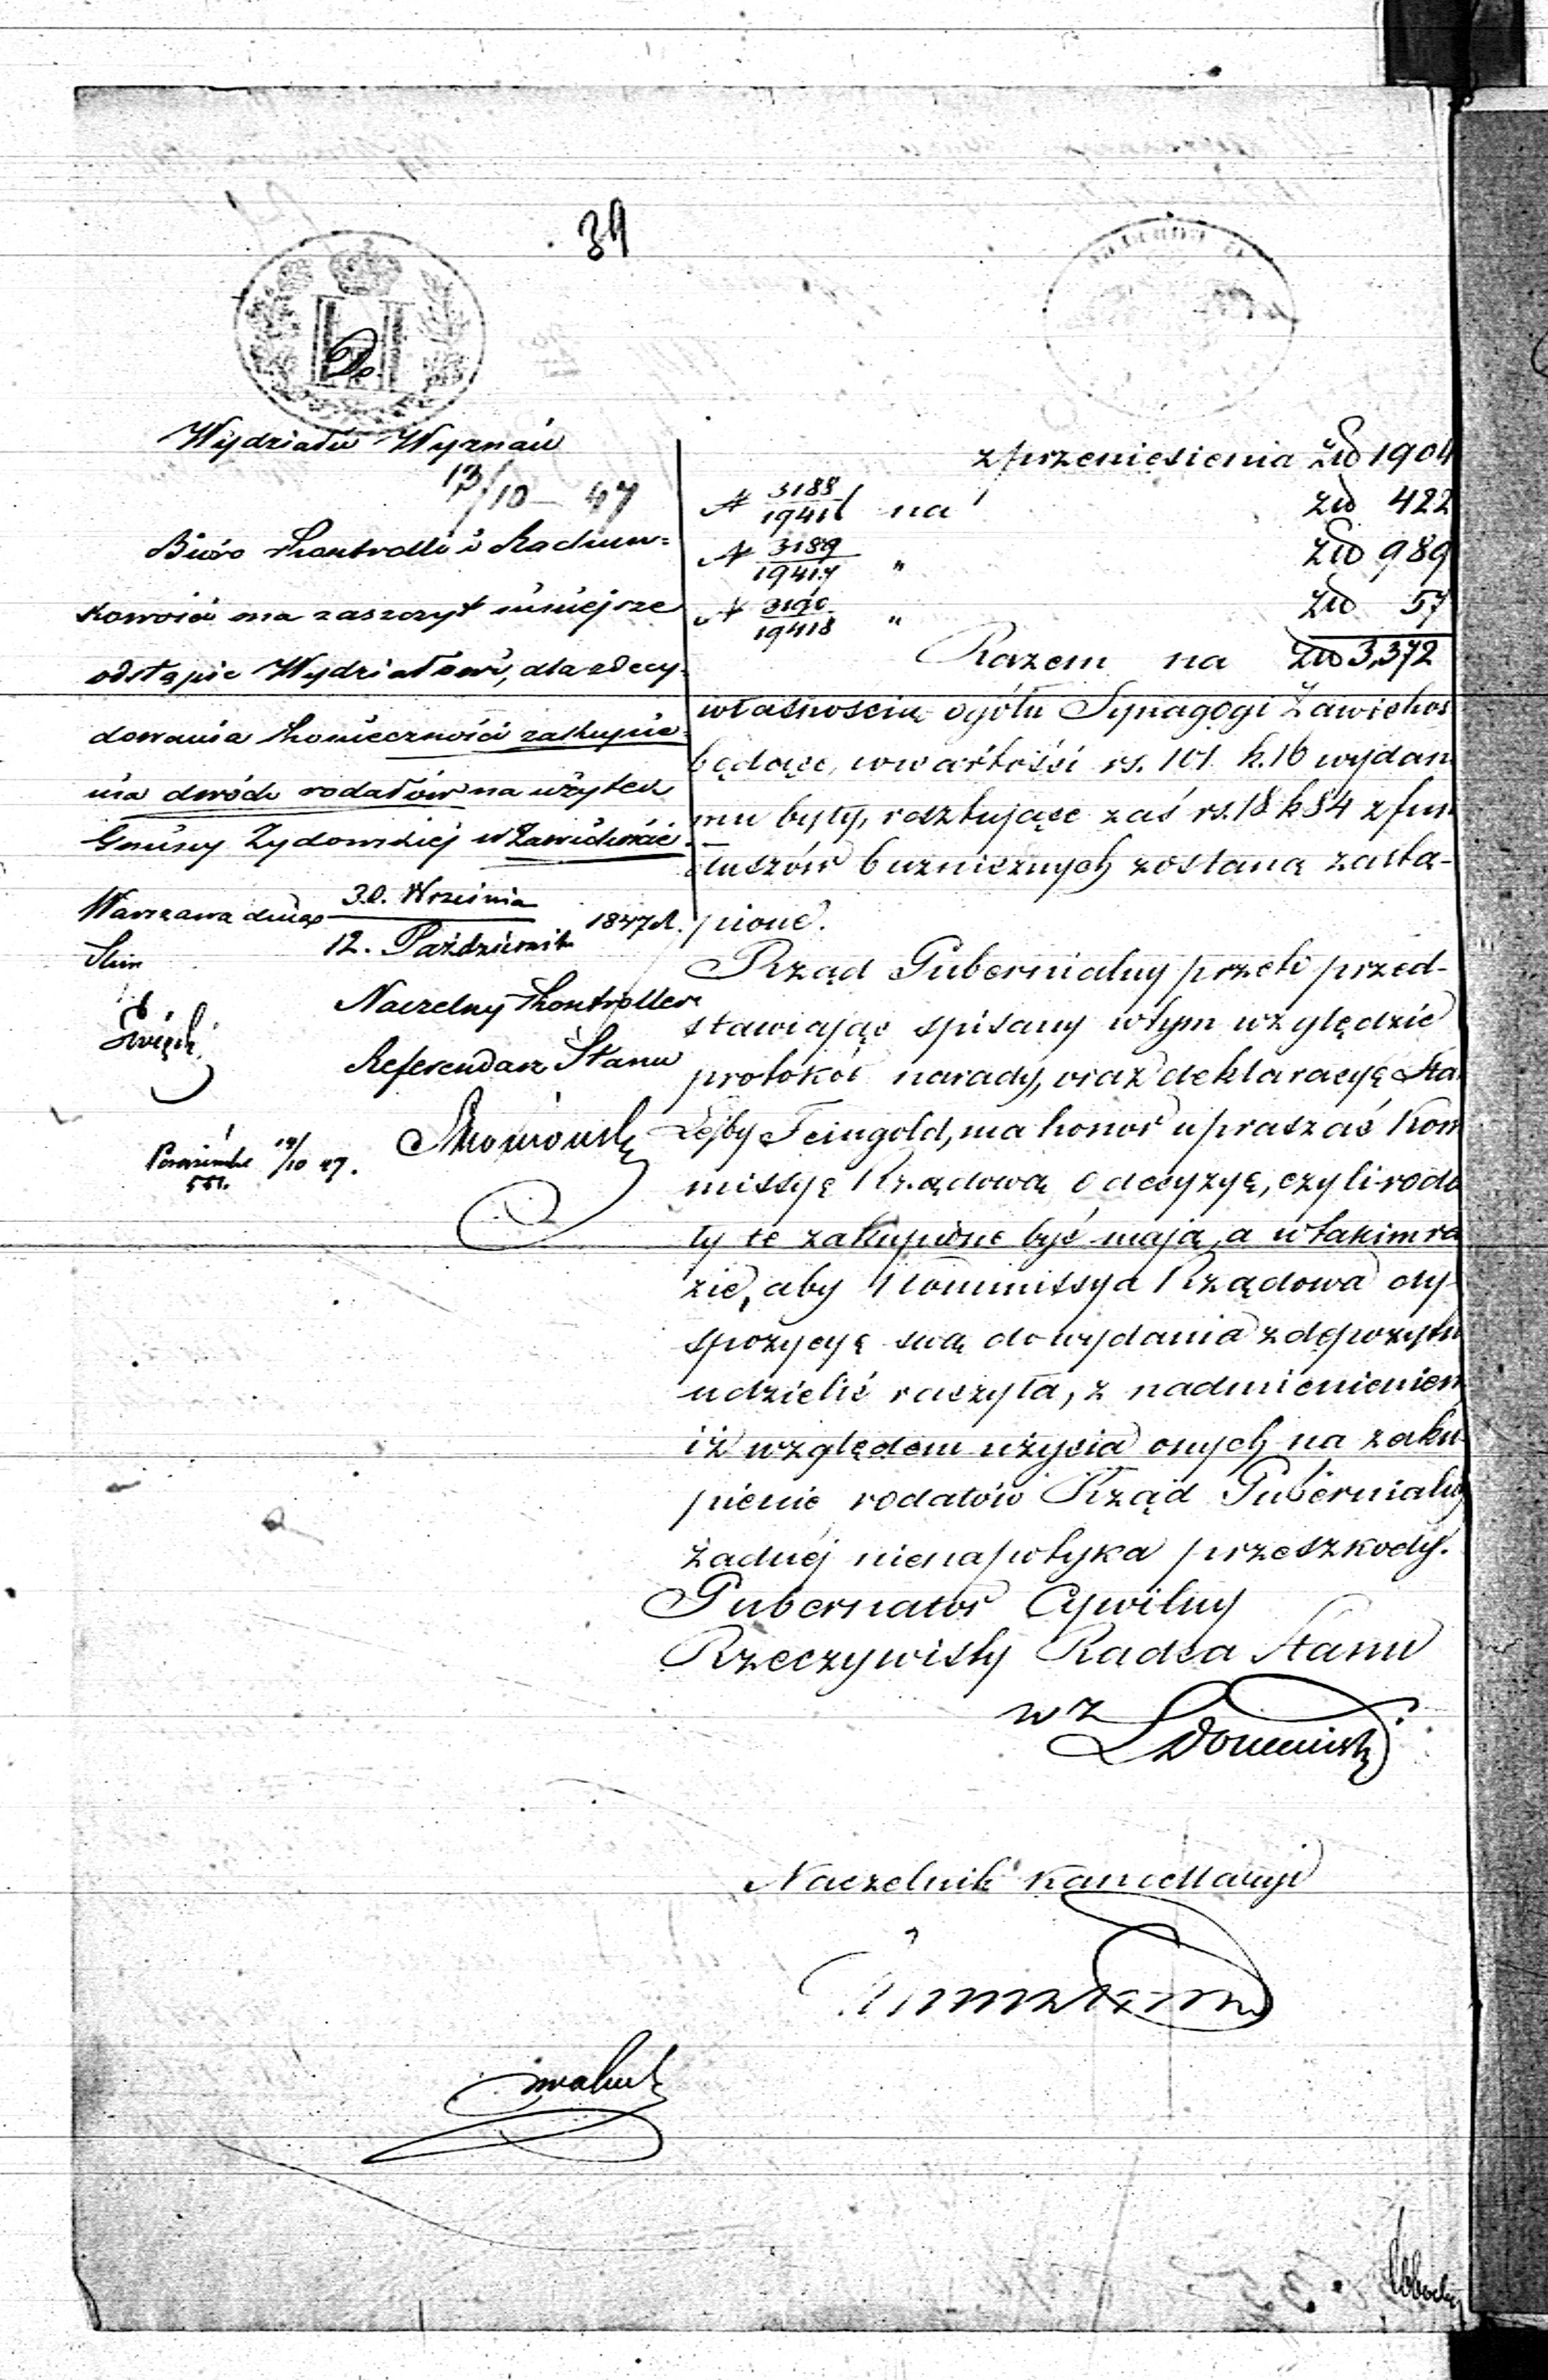 39
Do
Wydziału Wyznań
13/10 – 47
Biuro Kontrolli i Rachun=
kowości ma zaszczyt niniejsze
odstąpić Wydziałowi, dla zdecy-
dowania konieczności zakupie-
nia dwóch rodałów na użytek
Gminy Żydowskiej w Zawichoście.
Warszawa dnia 30. Września
12. Październik 1847 R.
Naczelny Kontroller
Referendarz Stanu
19/10 47.
551.
z przeniesienia Złp 1904
N 3188/19416 na Złp 422
N 3189/19417 " Złp 989
N 3190/19418 " Złp 57
Razem na Złp 3,372
własnością ogółu Synagogi Zawichos
będące, wwartości rs. 101 k. 16 wydan
mu były, resztujące zaś rs. 18 k 84 z fun
duszów bużnicznych zostaną zastą-
pione.
Rząd Gubernialny przeto przed-
stawiając spisany wtym względzie
protokół narady, oraz deklaracyę Sta.
Lejby Feingold, ma honor upraszać Kom
missyę Rządową o decyzyę, czyli roda
ły te zakupione być mają, a w takim ra
zie, aby Kommissya Rządowa dy-
spozycyę swą do wydania z depozytu
udzielić raczyła, z nadmienieniem
iż względem użycia onych na zaku-
pienie rodałów Rząd Gubernialny
żadnéj nienapotyka przeszkody.
Gubernator Cywilny
Rzeczywisty Radca Stanu
w z
Naczelnik Kancellaryi